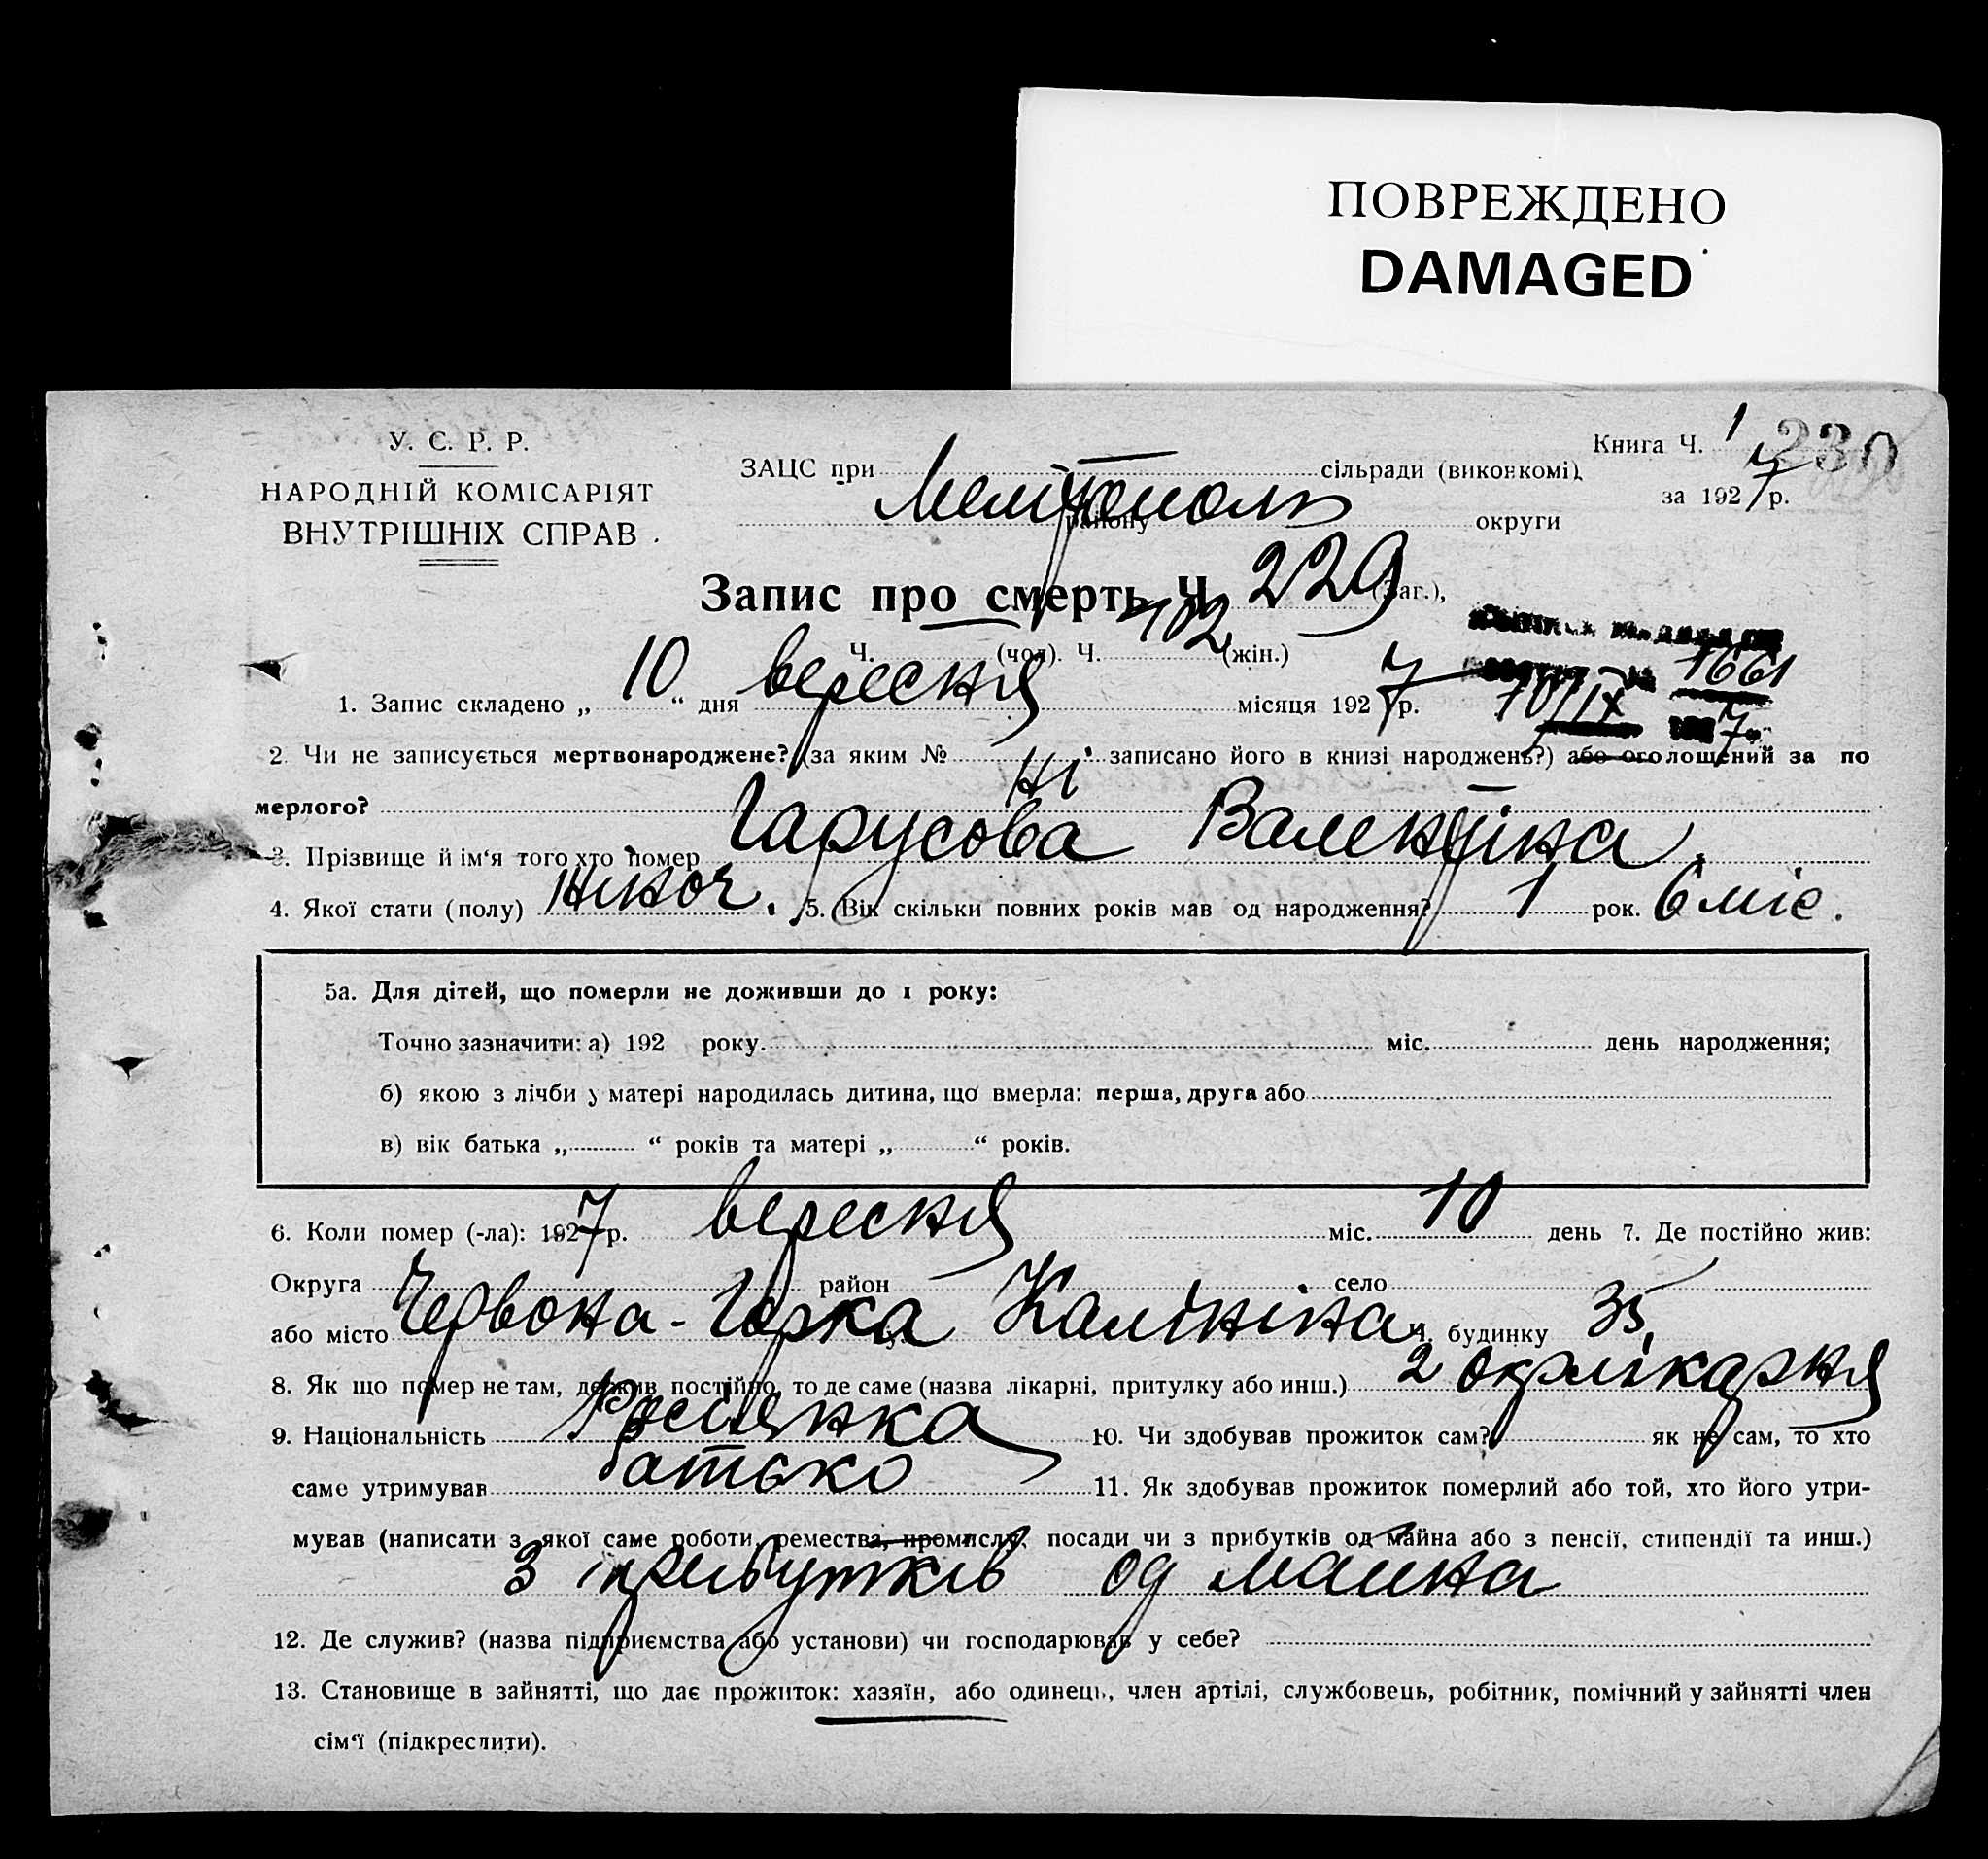 ПОВРЕЖДЕНО
DAMAGED
У. С. Р. Р.
НАРОДНІЙ КОМІСАРІЯТ
ВНУТРІШНІХ СПРАВ
Книга Ч. 1 230
за 1927 р.
ЗАЦС при Мелітополь сільради (виконкомі),
району округи
Запис про смерть Ч. 229 (заг.),
Ч. (чол). Ч. 102 (жін.)
1661
10/IX 7
1. Запис складено „ 10 “ дня вересня місяця 1927 р.
2. Чи не записується мертвонароджене? (за яким № записано його в книзі народжень?) або оголошений за по
мерлого? Ні
3. Прізвище й ім‘я того хто помер Гарусова Валентіна.
4. Якої стати (полу) жіноч. 5. Вік скільки повних років мав од народження? 1 рок. 6 міс.
5а. Для дітей, що померли не доживши до 1 року:
Точно зазначити: а) 192 року. міс. день народження;
б) якою з лічби у матері народилась дитина, що вмерла: перша, друга або
в) вік батька „ “ років та матері „ “ років.
6. Коли помер (-ла): 1927 р. вересня міс. 10 день 7. Де постійно жив:
Округа район село
або місто Червона-Горка Калініна Ч. будинку 35,
8. Як що помер не там, де жив постійно, то де саме (назва лікарні, притулку або инш.) 2 окрлікарня
9. Національність Росіянка 10. Чи здобував прожиток сам? як не сам, то хто
саме утримував батько 11. Як здобував прожиток померлий або той, хто його утри-
мував (написати з якої саме роботи, ремества, промислу, посади чи з прибутків од майна або з пенсії, стипендії та инш.)
З прибутків од майна
12. Де служив? (назва підприємства або установи) чи господарював у себе?
13. Становище в зайнятті, що дає прожиток: хазяїн, або одинець, член артілі, службовець, робітник, помічний у зайнятті член
сім‘ї (підкреслити).